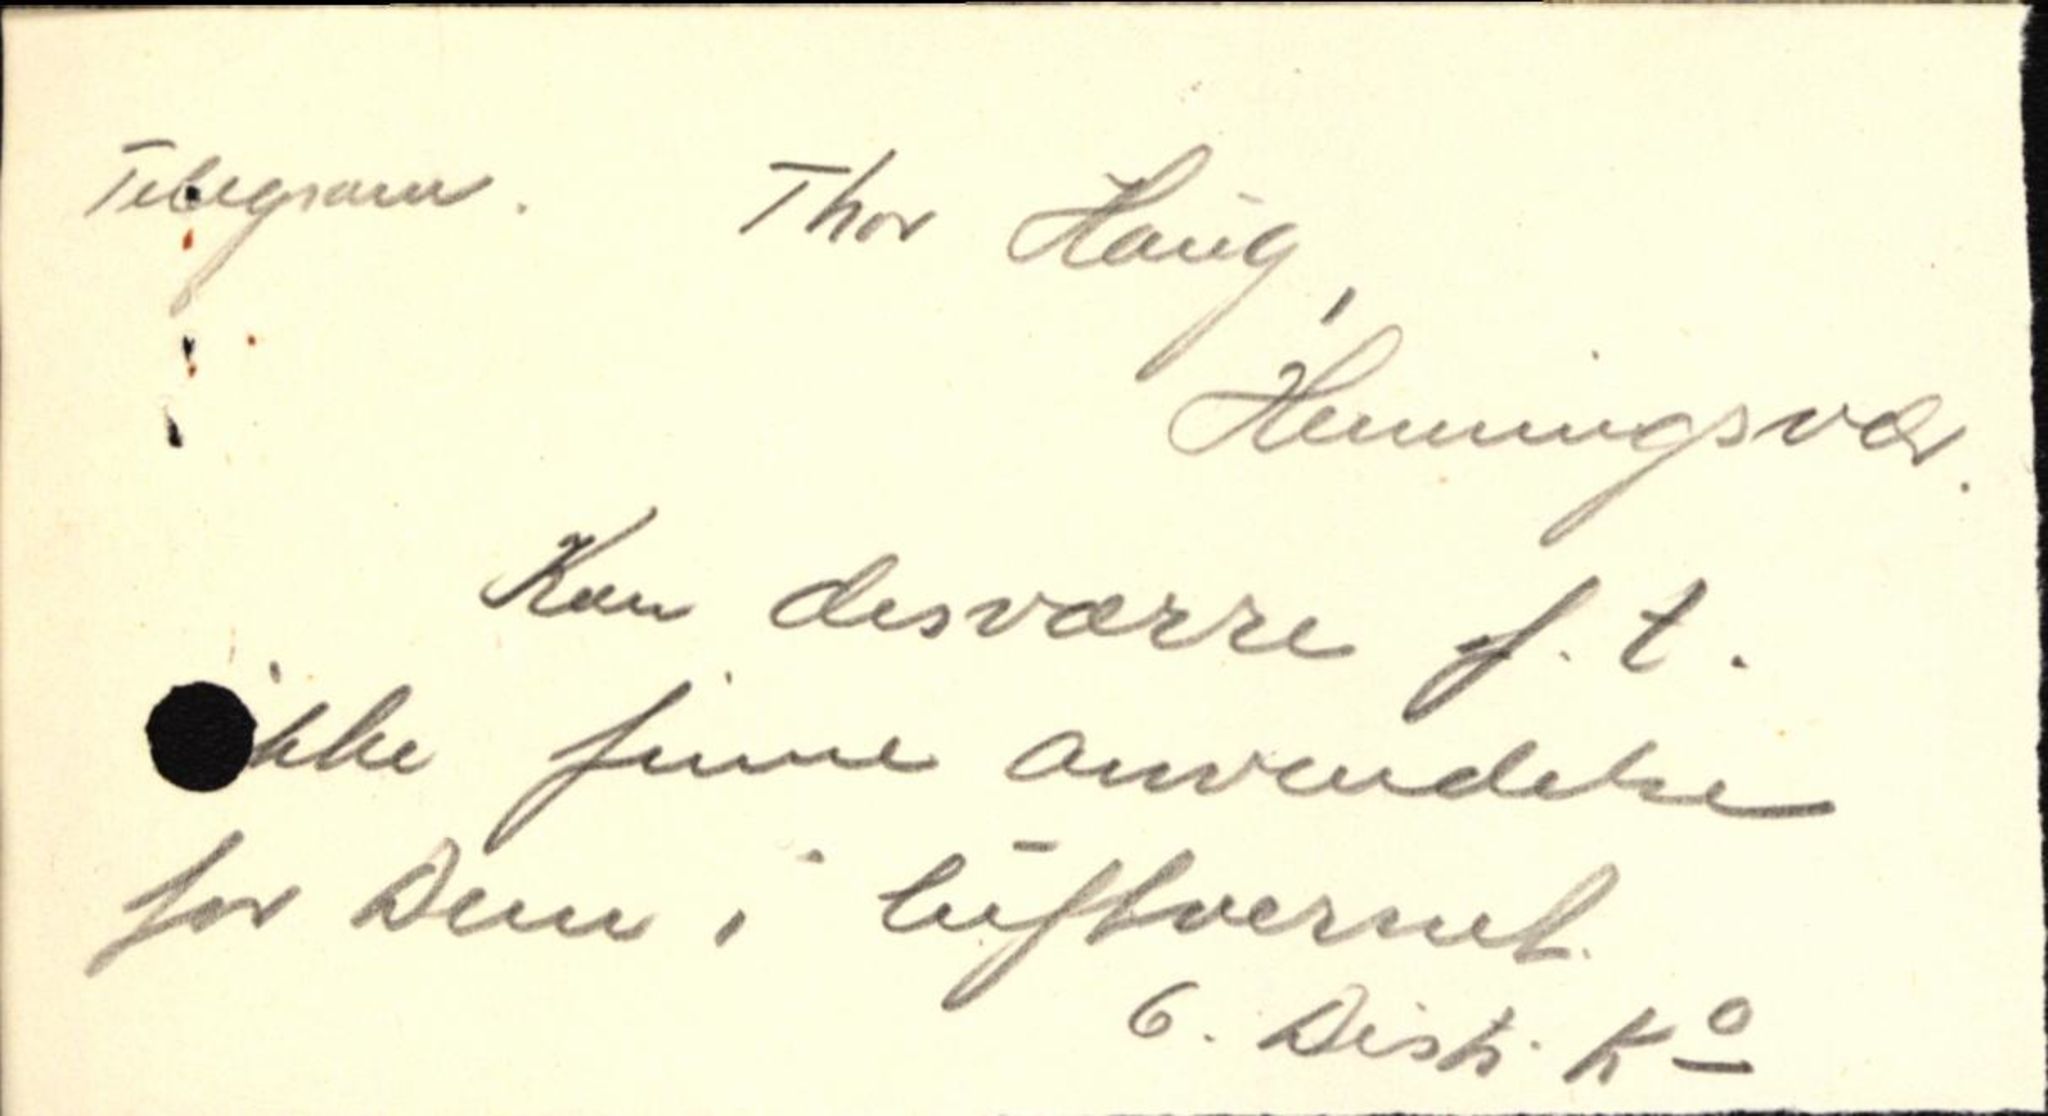 Telegram. Thor Haug,
Henningsvær.
Kan desværre f. t.
ikke finne anvendelse
for Dem i luftvernet.
6. Distr. Kº